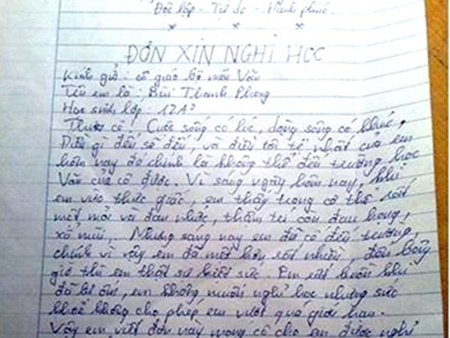 Độc lập - Tự do - Hạnh phúc
ĐƠN XIN NGHỈ HỌC
Kính gửi: cô giáo bộ môn Văn
Tên em là: Bùi Thanh Phong
Học sinh lớp: 12A2
Thưa cô! Cuộc sống có lúc, dòng sông có khúc,
Điều gì đến sẽ đến, và điều tồi tệ nhất của em
hôm nay đó chính là không thể đến trường học
Văn của cô được. Vì sáng ngày hôm nay, khi
em vừa thức giấc, em thấy trong cơ thể rất
mệt mỏi và đau nhức, thậm trí còn đau họng,
xổ mũi, Nhưng sáng nay em đã cố đến trường,
chính vì vậy em đã mệt hơn rất nhiều, đến bây
giờ thì em thật sự kiệt sức. Em rất buồn khi
đã bị ốm, em không muốn nghỉ học nhưng sức
khoẻ không cho phép em vượt quá giới hạn.
Vậy em viết đơn này mong cô cho em được nghỉ